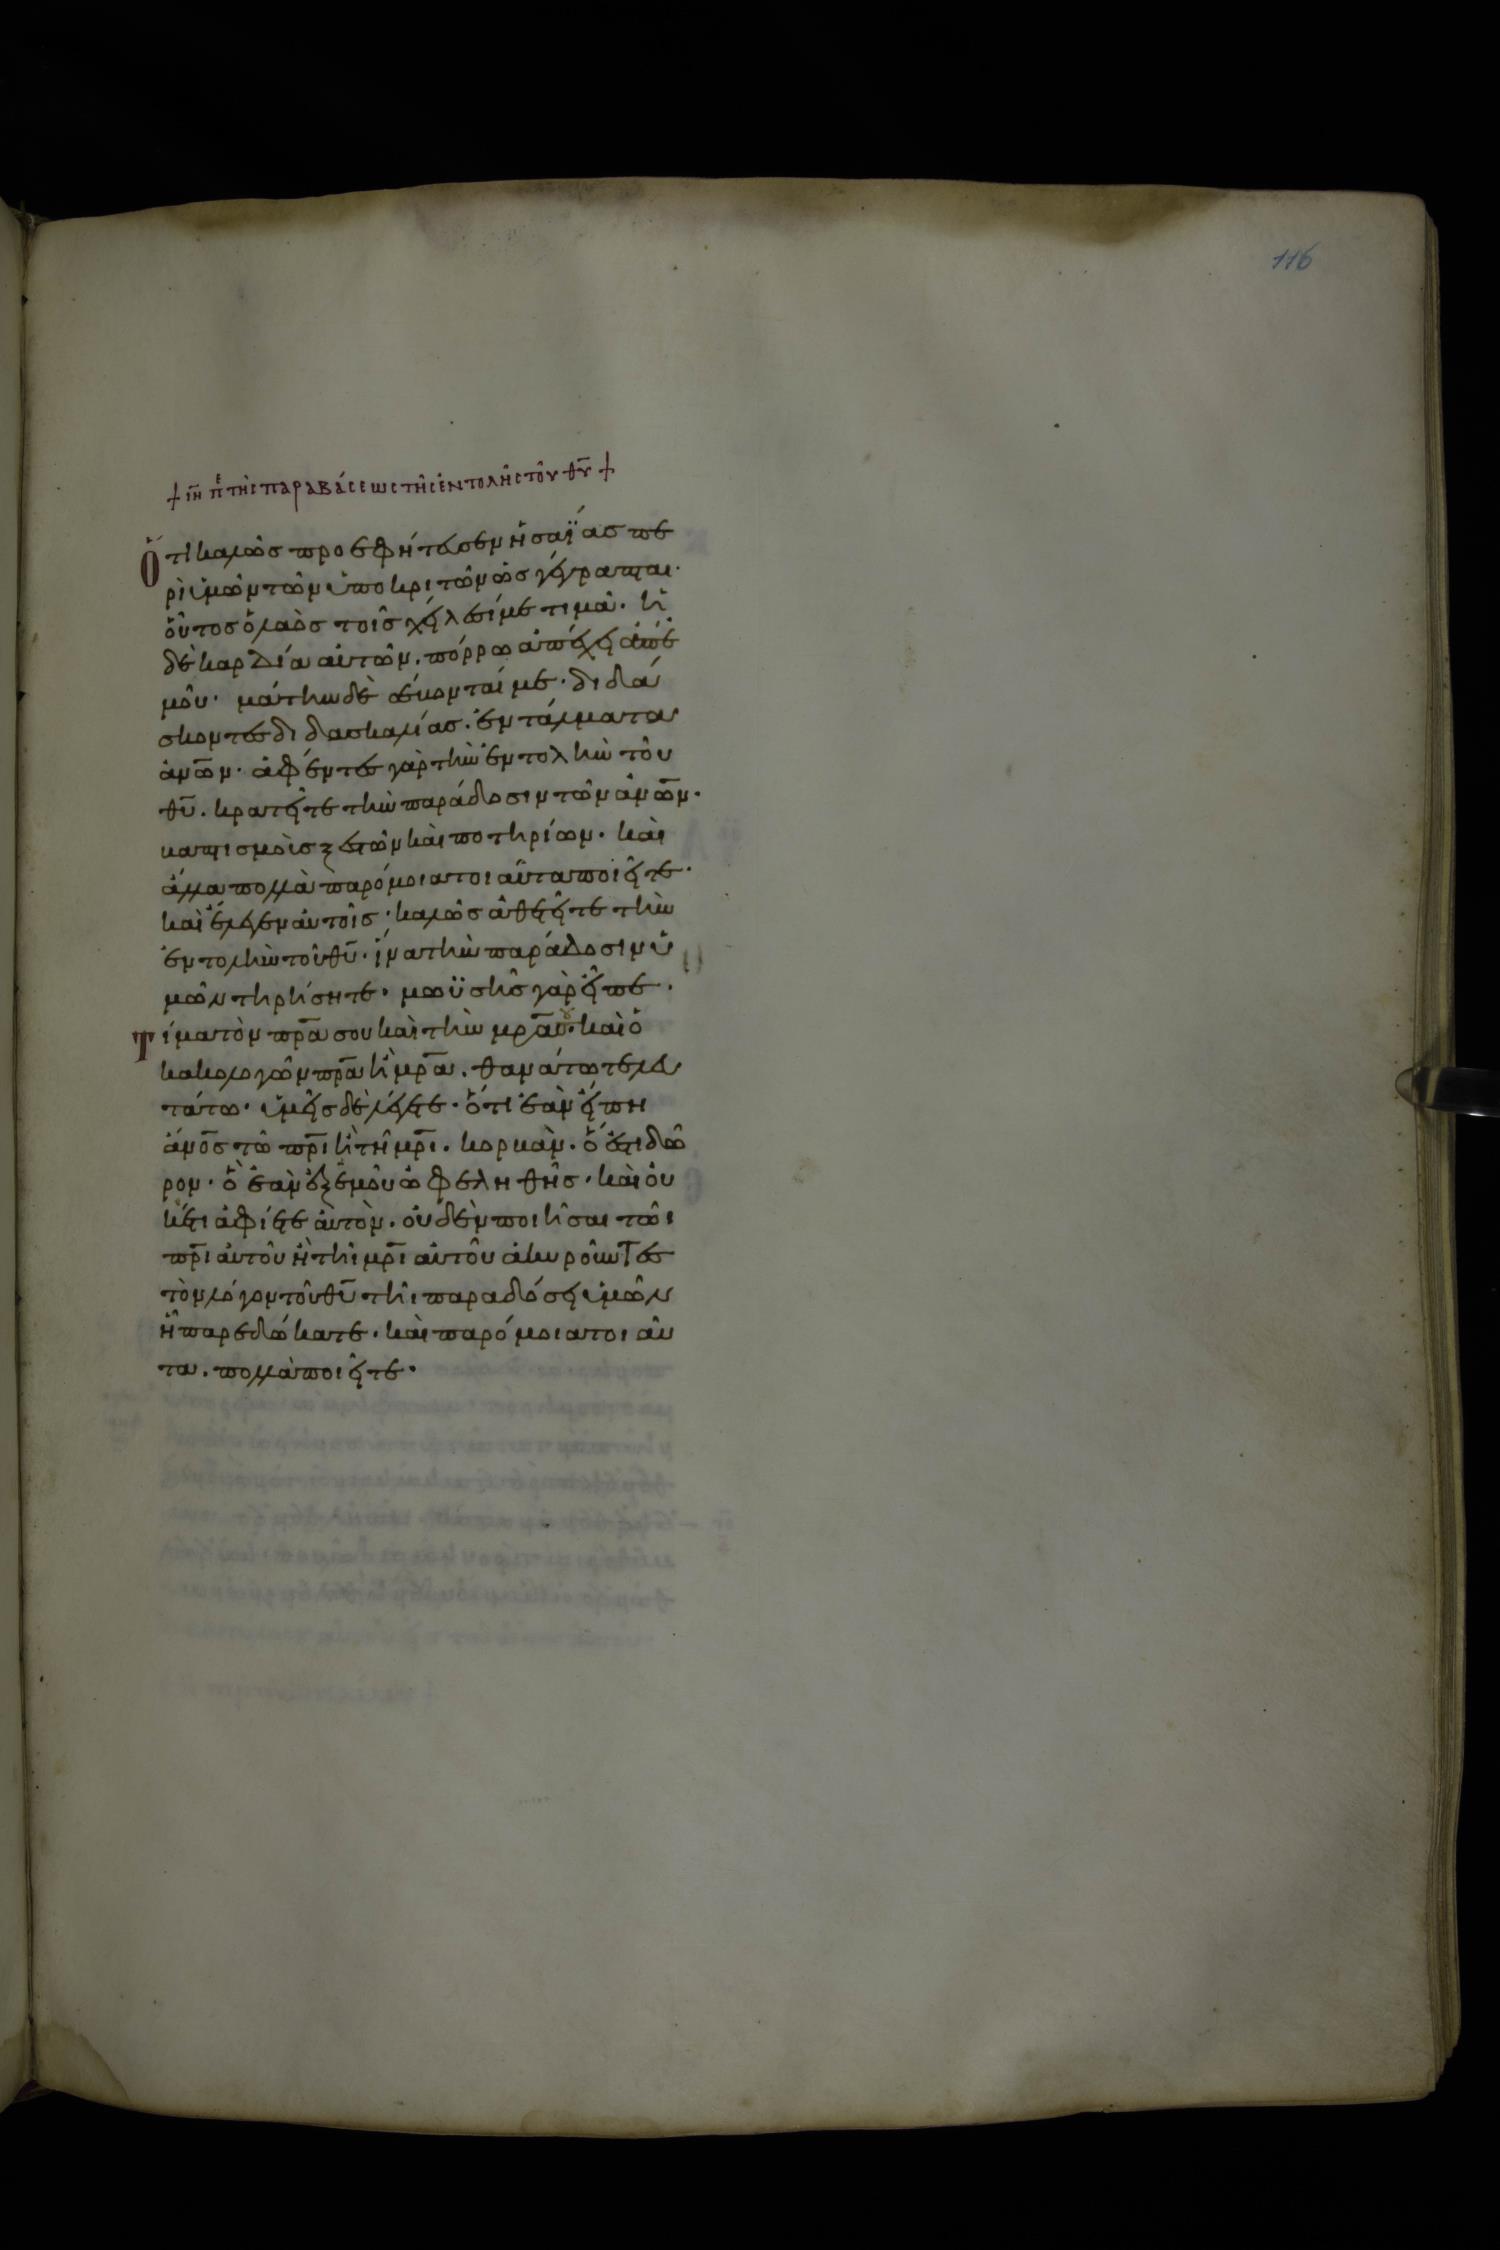 116
+ ιη πε τῆς παραβάσεως τῆς ἐντολῆς τοῦ θυ +
Ὅτι καλῶς προεφήτευσεν ἡσαΐας πε
ρὶ ὑμῶν τῶν ὑποκριτῶν ὡς γέγραπται·
οὗτος ὁ λαὸς τοῖς χείλεσί με τιμᾶ. ἡ
δὲ καρδία αὐτῶν. πόρρω ἀπέχει ἀπ' ἐ
μοῦ· μάτην δὲ σέβονταί με· διδά
σκοντες διδασκαλίας. ἐντάλματα
ἀνων· ἀφέντες γὰρ τὴν ἐντολὴν τοῦ
θυ. κρατεῖτε τὴν παράδοσιν τῶν ἀνων·
βαπτισμοὺς ξεστῶν καὶ ποτηρίων. καὶ
ἄλλα πολλὰ παρόμοια τοιαῦτα ποιεῖτε·
καὶ ἔλεγεν αὐτοῖς· καλῶς ἀθετεῖτε τὴν
ἐντολὴν τοῦ θυ· ἵνα τὴν παράδοσιν ὑ
μῶν τηρήσητε· μωϋσῆς γὰρ εἶπε·
Τίμα τὸν πρα σου καὶ τὴν μρα σου· καὶ ὁ
κακολογῶν πρα ἢ μρα. θανάτω τελευ
τάτω· ὑμεῖς δὲ λέγετε· ὅτι ἐὰν εἴπη
ἀνος τῶ πρι ἢ τῆ μρι. κορβὰν. ὅ ἐστι δῶ
ρον· ὃ ἐὰν ἐξ ἐμοῦ ὠφεληθῆς· καὶ οὐ
κέτι ἀφίετε αὐτὸν. οὐδὲν ποιῆσαι τῶι
πρι αὐτοῦ ἢ τῆι μρι αὐτοῦ ἀκυροῦντες
τὸν λόγον τοῦ θυ τῆι παραδόσει ὑμῶν
ἣ παρεδώκατε· καὶ παρόμοια τοιαῦ
τα. πολλὰ ποιεῖτε·